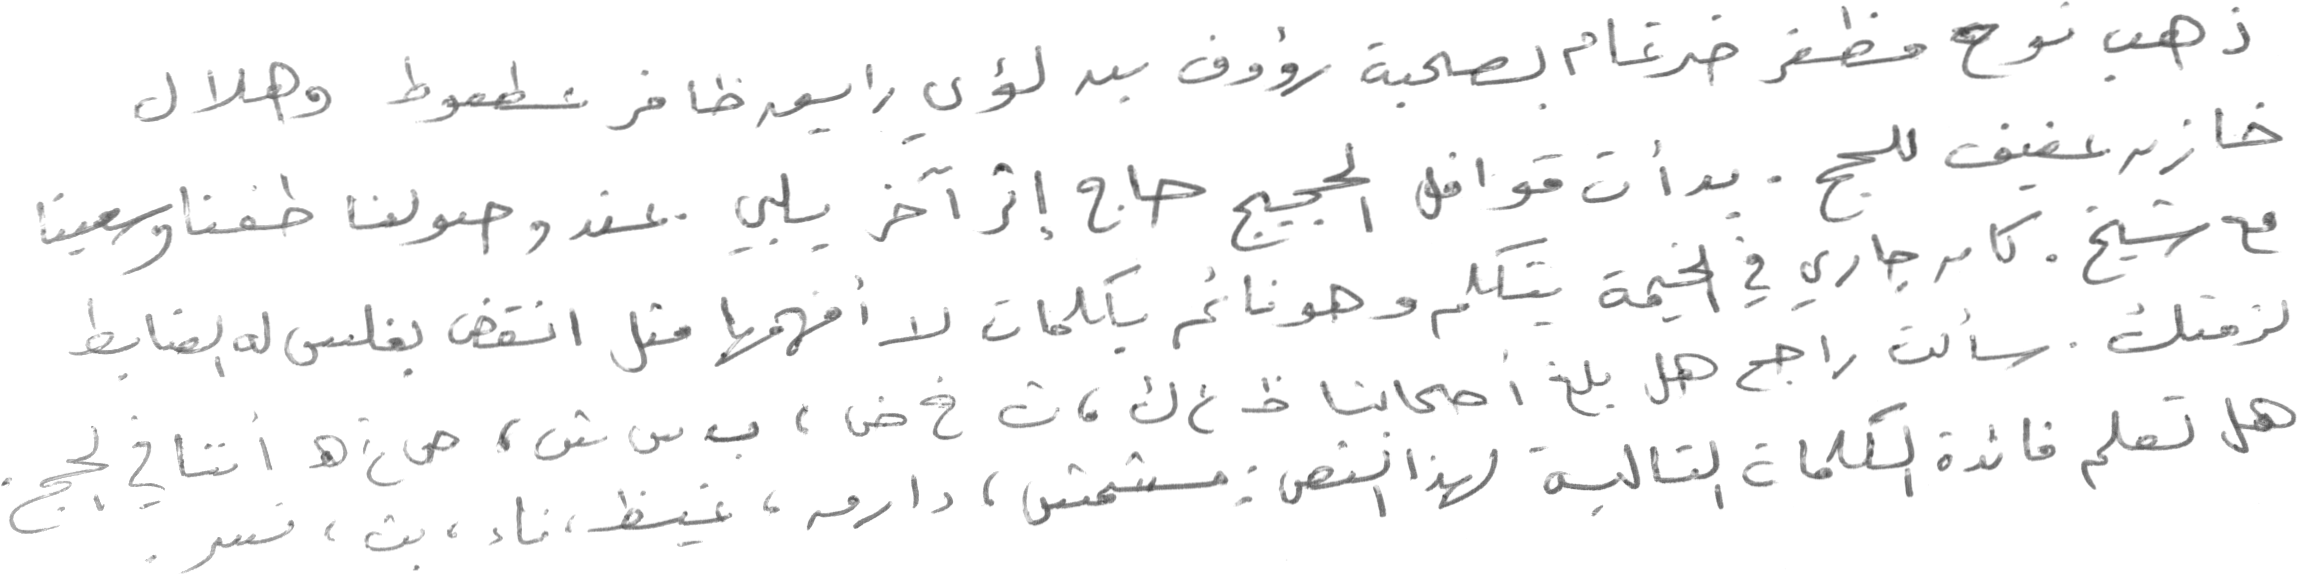 ذهب نوح مظفر ضرغام بصحبة رؤوف بن لؤي رايق ظافر عطعوط وهلال
خازن عفيف للحج . بدأت قوافل الحجيج حاج إثر آخر يلبي . عند وصولنا طفنا وسعينا
مع شيخ . كان جاري في الخيمة يتكلم وهو نائم بكلمات لا أفهمها مثل انقض بغلس له الضابط
لزمتك . سألت راجح هل بلغ أصحابنا ظ غ ك ، ث خ ض ، ب س ش ، ص غ ه أننا في الحج .
هل تعلم فائدة الكلمات التالية لهذا النص : مشمش ، دارم ، غيظ ، ناء ، بث ، نسر .